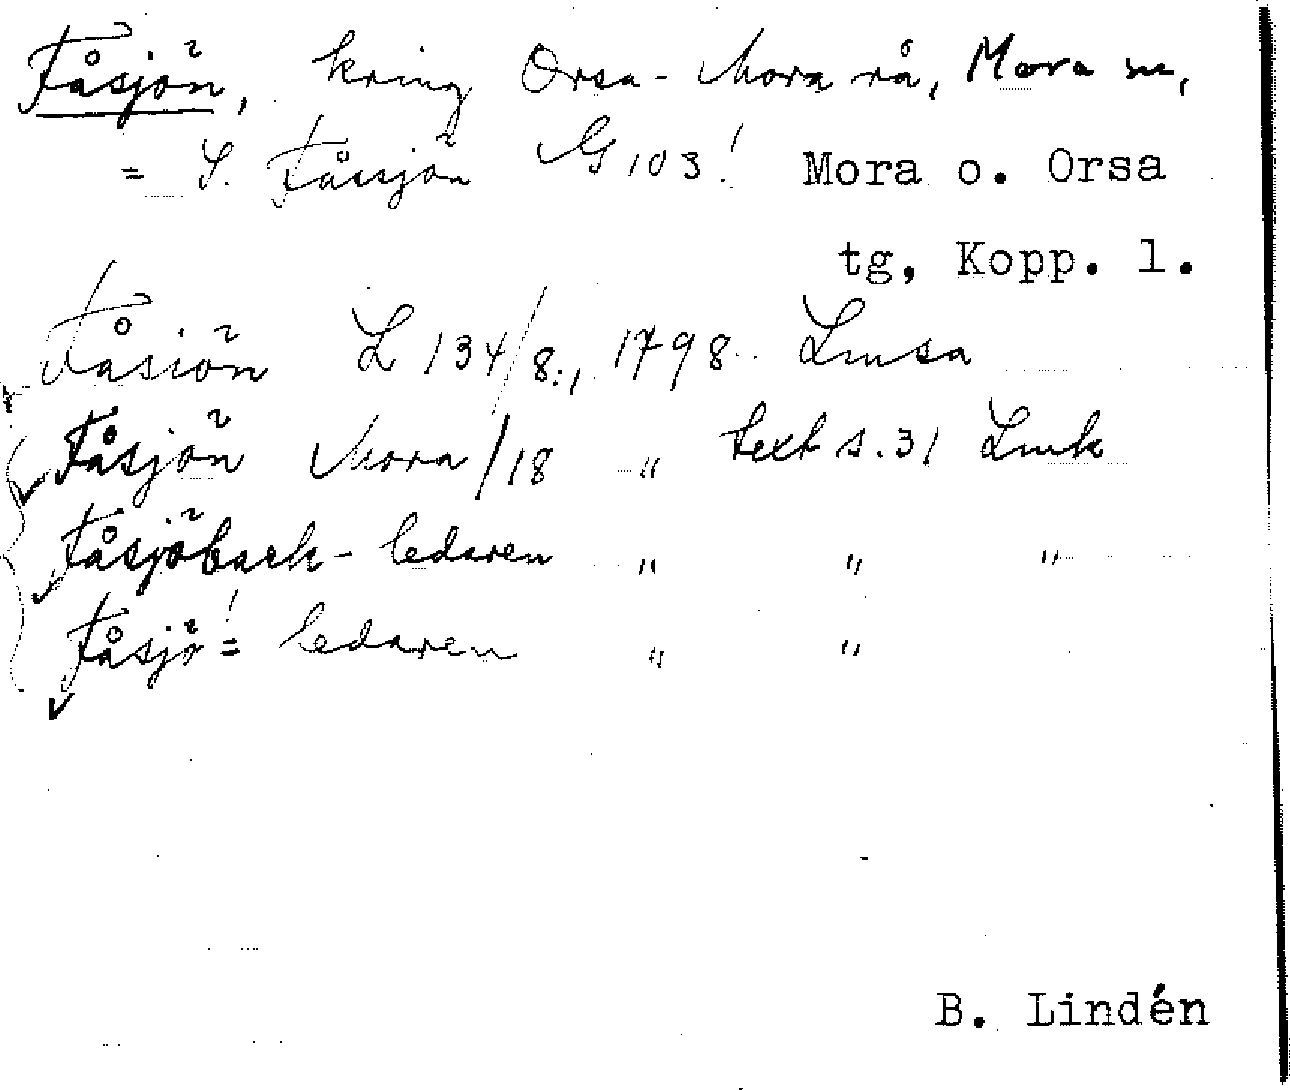 Fåsjön, kring Orsa-Mora rå, Mora sn,
= S. Fåssjön G 103! Mora o. Orsa
tg, Kopp. l.
Fåsiön L 134/8:, 1798 Lmsa
Fåsjön Mora/18 " text s.31 Lmk
Fåsjöbäck-ledaren " " "
Fåsjö!=ledaren " "
B. Lindén